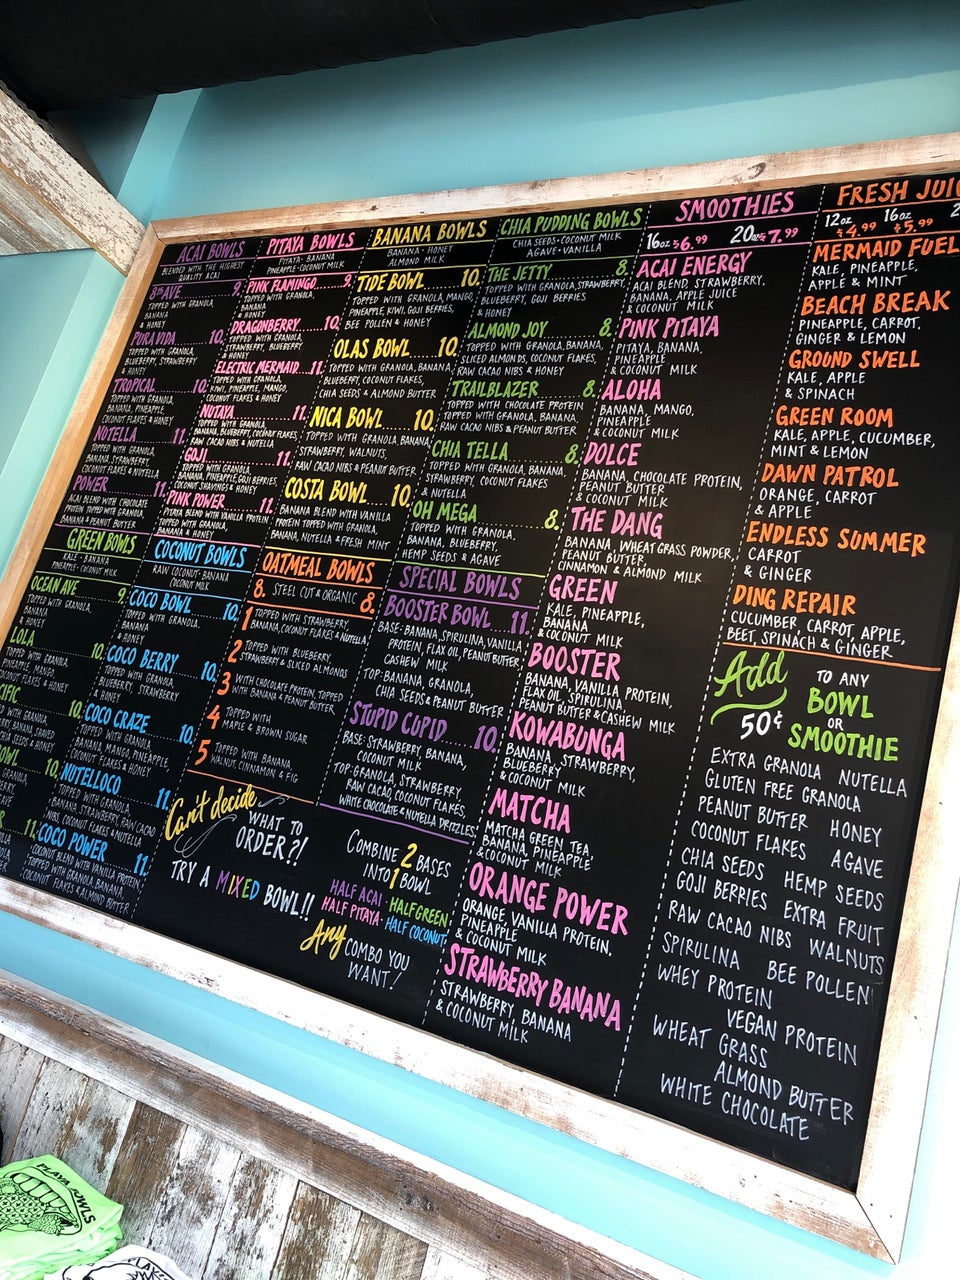 ACAI BOWLS
BLENDED WITH THE HIGHEST
QUALITY ACAI
8TH AVE 9.
TOPPED WITH GRANOLA,
BANANA
& HONEY
PURA VIDA 10.
TOPPED WITH GRANOLA,
BLUEBERRY, STRAWBERRY
& HONEY
TROPICAL 10.
TOPPED WITH GRANOLA,
BANANA, PINEAPPLE,
COCONUT FLAKES & HONEY
NUTELLA 11.
TOPPED WITH GRANOLA,
BANANA, STRAWBERRY,
COCONUT FLAKES & NUTELLA
POWER 11.
ACAI BLEND WITH CHOCOLATE
PROTEIN TOPPED WITH GRANOLA,
BANANA & PEANUT BUTTER
GREEN BOWLS
KALE · BANANA
PINEAPPLE · COCONUT MILK
OCEAN AVE 9.
TOPPED WITH GRANOLA,
BANANA
& HONEY
LOLA 10.
WITH GRANOLA,
PINEAPPLE, MANGO,
FLAKES & HONEY
10.
WITH GRANOLA,
& HONEY
10.
11.
PITAYA BOWLS
PITAYA · BANANA
PINEAPPLE · COCONUT MILK
PINK FLAMINGO 9.
TOPPED WITH GRANOLA,
BANANA
& HONEY
DRAGONBERRY 10.
TOPPED WITH GRANOLA,
STRAWBERRY, BLUEBERRY
& HONEY
ELECTRIC MERMAID 11.
TOPPED WITH GRANOLA,
KIWI, PINEAPPLE, MANGO,
COCONUT FLAKES & HONEY
NUTAYA 11.
TOPPED WITH GRANOLA,
BANANA, BLUEBERRY, COCONUT FLAKES,
RAW CACAO NIBS & NUTELLA
GOJI 11.
TOPPED WITH GRANOLA,
BANANA, PINEAPPLE, GOJI BERRIES,
COCONUT SHAVINGS & HONEY
PINK POWER 11.
PITAYA BLEND WITH VANILLA PROTEIN,
TOPPED WITH GRANOLA,
BANANA & HONEY
COCONUT BOWLS
RAW COCONUT · BANANA
COCONUT MILK
COCO BOWL 10.
TOPPED WITH GRANOLA,
BANANA
& HONEY
COCO BERRY 10.
TOPPED WITH GRANOLA,
BLUEBERRY, STRAWBERRY
& HONEY
COCO CRAZE 10.
TOPPED WITH GRANOLA,
BANANA, MANGO, PINEAPPLE,
COCONUT FLAKES & HONEY
NUTELLOCO 11.
TOPPED WITH GRANOLA,
BANANA, STRAWBERRY, RAW CACAO
NIBS, COCONUT FLAKES & NUTELLA
COCO POWER 11.
COCONUT BLEND WITH VANILLA PROTEIN,
TOPPED WITH GRANOLA, BANANA,
COCONUT FLAKES & ALMOND BUTTER
BANANA BOWLS
BANANA · HONEY
ALMOND MILK
TIDE BOWL 10.
TOPPED WITH GRANOLA, MANGO,
PINEAPPLE, KIWI, GOJI BERRIES,
BEE POLLEN & HONEY
OLAS BOWL 10.
TOPPED WITH GRANOLA, BANANA,
BLUEBERRY, COCONUT FLAKES,
CHIA SEEDS & ALMOND BUTTER
NICA BOWL 10.
TOPPED WITH GRANOLA, BANANA,
STRAWBERRY, WALNUTS,
RAW CACAO NIBS & PEANUT BUTTER
COSTA BOWL 10.
BANANA BLEND WITH VANILLA
PROTEIN TOPPED WITH GRANOLA,
BANANA, NUTELLA & FRESH MINT
OATMEAL BOWLS
8. STEEL CUT & ORGANIC 8.
1 TOPPED WITH STRAWBERRY,
BANANA, COCONUT FLAKES & NUTELLA
2 TOPPED WITH BLUEBERRY,
STRAWBERRY & SLICED ALMONDS
3 WITH CHOCOLATE PROTEIN, TOPPED
WITH BANANA & PEANUT BUTTER
4 TOPPED WITH
MAPLE & BROWN SUGAR
5 TOPPED WITH BANANA,
WALNUT, CINNAMON & FIG
Can't decide
WHAT TO
ORDER?!
TRY A MIXED BOWL!!
COMBINE 2 BASES
INTO 1 BOWL
HALF ACAI · HALF GREEN
HALF PITAYA · HALF COCONUT
Any COMBO YOU
WANT!
CHIA PUDDING BOWLS
CHIA SEEDS · COCONUT MILK
AGAVE · VANILLA
THE JETTY 8.
TOPPED WITH GRANOLA, STRAWBERRY,
BLUEBERRY, GOJI BERRIES
& HONEY
ALMOND JOY 8.
TOPPED WITH GRANOLA, BANANA,
SLICED ALMONDS, COCONUT FLAKES,
RAW CACAO NIBS & HONEY
TRAILBLAZER 8.
TOPPED WITH CHOCOLATE PROTEIN
TOPPED WITH GRANOLA, BANANA
RAW CACAO NIBS & PEANUT BUTTER
CHIA TELLA 8.
TOPPED WITH GRANOLA, BANANA
STRAWBERRY, COCONUT FLAKES
& NUTELLA
OH MEGA 8.
TOPPED WITH GRANOLA,
BANANA, BLUEBERRY,
HEMP SEEDS & AGAVE
SPECIAL BOWLS
BOOSTER BOWL 11.
BASE: BANANA, SPIRULINA, VANILLA
PROTEIN, FLAX OIL, PEANUT BUTTER,
CASHEW MILK
TOP: BANANA, GRANOLA,
CHIA SEEDS & PEANUT BUTTER
STUPID CUPID 10.
BASE: STRAWBERRY, BANANA,
COCONUT MILK
TOP: GRANOLA, STRAWBERRY,
RAW CACAO, COCONUT FLAKES,
WHITE CHOCOLATE & NUTELLA DRIZZLES
SMOOTHIES
16oz $6.99 20oz $7.99
ACAI ENERGY
ACAI BLEND, STRAWBERRY,
BANANA, APPLE JUICE
& COCONUT MILK
PINK PITAYA
PITAYA, BANANA,
PINEAPPLE
& COCONUT MILK
ALOHA
BANANA, MANGO,
PINEAPPLE
& COCONUT MILK
DOLCE
BANANA, CHOCOLATE PROTEIN,
PEANUT BUTTER
& COCONUT MILK
THE DANG
BANANA, WHEATGRASS POWDER,
PEANUT BUTTER,
CINNAMON & ALMOND MILK
GREEN
KALE, PINEAPPLE,
BANANA
& COCONUT MILK
BOOSTER
BANANA, VANILLA PROTEIN,
FLAX OIL, SPIRULINA,
PEANUT BUTTER & CASHEW MILK
KOWABUNGA
BANANA, STRAWBERRY,
BLUEBERRY
& COCONUT MILK
MATCHA
MATCHA GREEN TEA
BANANA, PINEAPPLE
& COCONUT MILK
ORANGE POWER
ORANGE, VANILLA PROTEIN,
PINEAPPLE
& COCONUT MILK
STRAWBERRY BANANA
STRAWBERRY, BANANA
& COCONUT MILK
FRESH JUIC
12oz 16oz 2
$4.99 $5.99
MERMAID FUEL
KALE, PINEAPPLE,
APPLE & MINT
BEACH BREAK
PINEAPPLE, CARROT,
GINGER & LEMON
GROUND SWELL
KALE, APPLE
& SPINACH
GREEN ROOM
KALE, APPLE, CUCUMBER,
MINT & LEMON
DAWN PATROL
ORANGE, CARROT
& APPLE
ENDLESS SUMMER
CARROT
& GINGER
DING REPAIR
CUCUMBER, CARROT, APPLE,
BEET, SPINACH & GINGER
Add TO ANY
50¢ BOWL
OR
SMOOTHIE
EXTRA GRANOLA NUTELLA
GLUTEN FREE GRANOLA
PEANUT BUTTER HONEY
COCONUT FLAKES AGAVE
CHIA SEEDS HEMP SEEDS
GOJI BERRIES EXTRA FRUIT
RAW CACAO NIBS WALNUTS
SPIRULINA BEE POLLEN
WHEY PROTEIN
VEGAN PROTEIN
WHEAT GRASS
ALMOND BUTTER
WHITE CHOCOLATE
PLAYA BOWLS